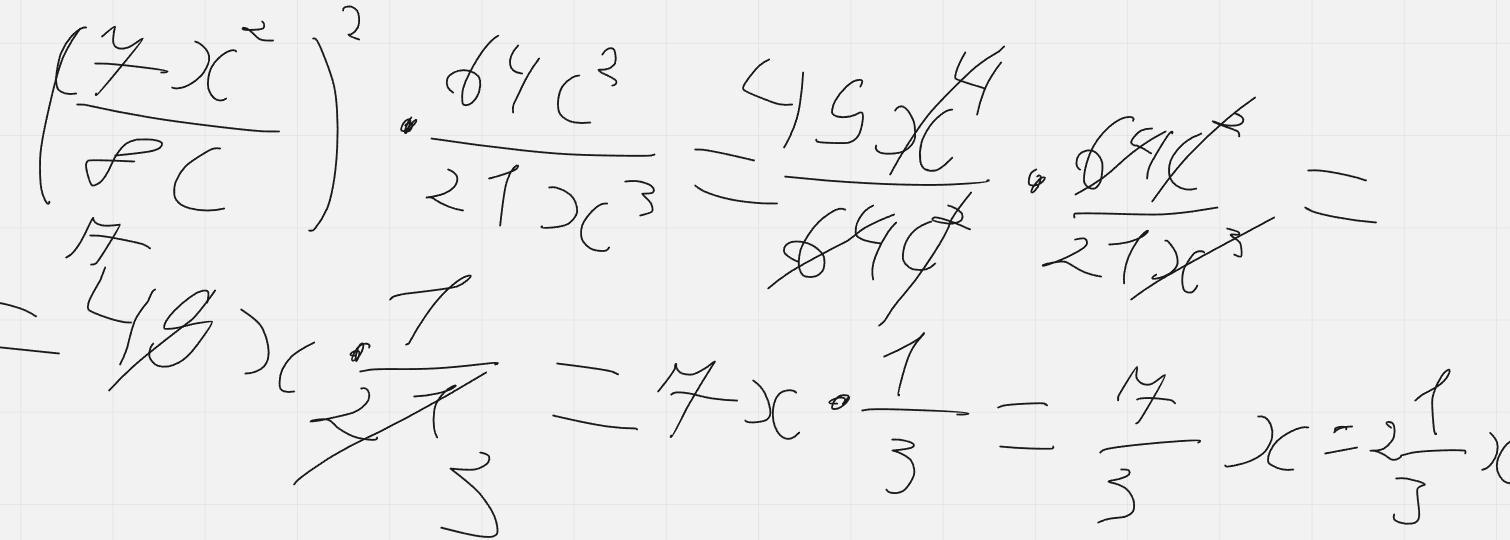 (7x²/8c)² · 64c³/21x³ = 49x⁴/64c² · 64c³/21x³ =
= 49x · 1/21 = 7x · 1/3 = 7/3 x = 2 1/3 x